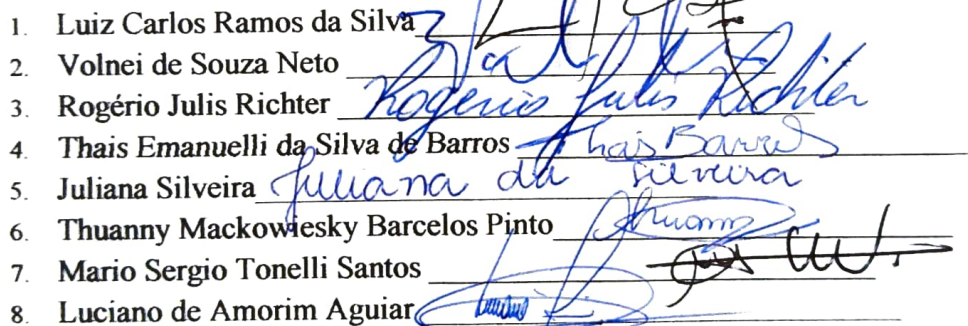 1. Luiz Carlos Ramos da Silva
2. Volnei de Souza Neto
3. Rogério Julis Richter Rogerio Julis Richter
4. Thais Emanuelli da Silva de Barros Thais Barros
5. Juliana Silveira Juliana da Silveira
6. Thuanny Mackowiesky Barcelos Pinto Thuanny
7. Mario Sergio Tonelli Santos
8. Luciano de Amorim Aguiar